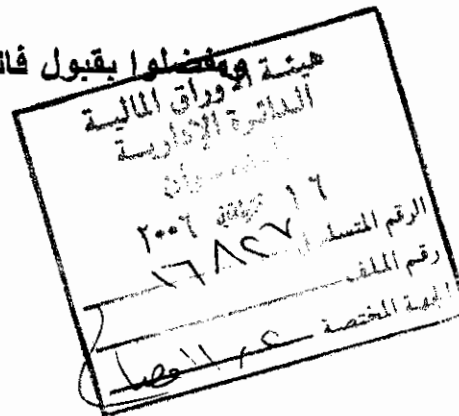 وتفضلوا بقبول فائ
هيئة الأوراق المالية
الدائرة الإدارية
الديوان
١٦ ٢٠٠٦
الرقم المتسلسل ١٦٨٢٧
رقم الملف
الجهة المختصة